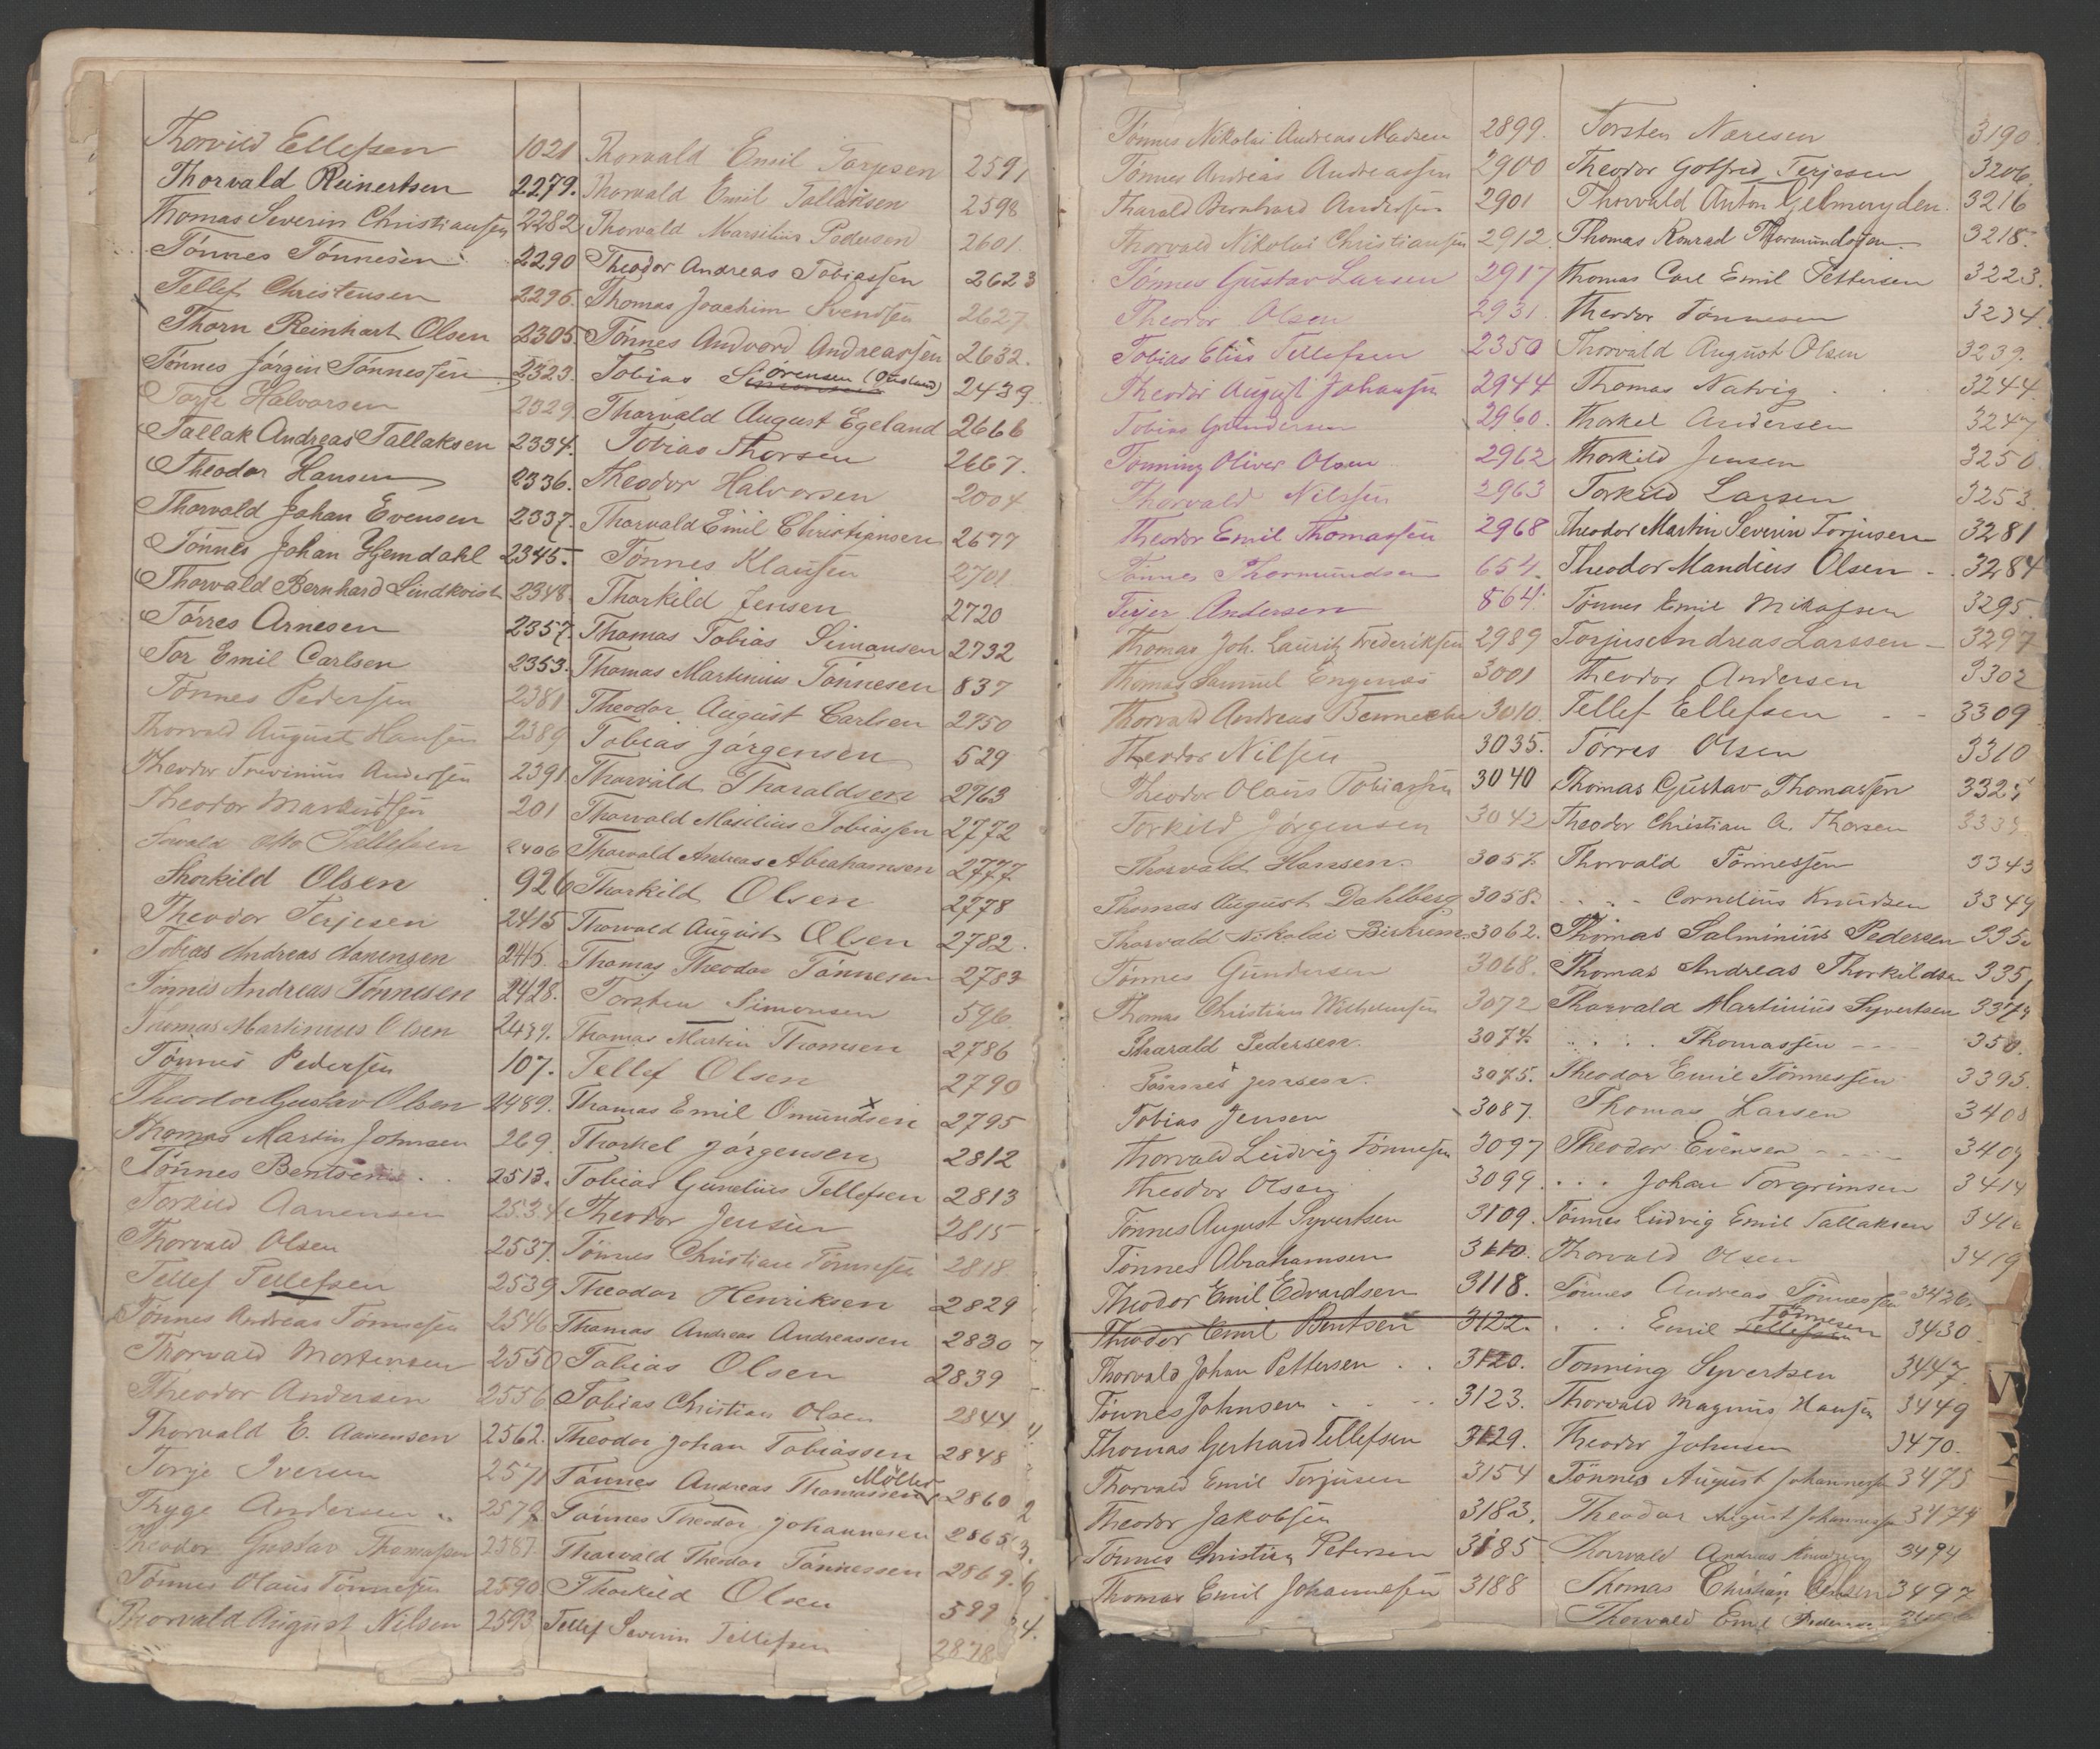 Thorvild Ellefsen 1021
Thorvald Reinertsen 2279.
Thomas Severin Christiansen 2282
Tönnes Tönnesen 2290
Tellef Christensen 2296.
Thorn Reinhart Olsen 2305
Tönnes Jörgin Tönnessen 2323.
Torje Halvorsen 2329
Tallak Andreas Tallaksen 2334.
Theodor Hansen 2336.
Thorvald Johan Evensen 2337.
Tönnes Johan Hjemdahl 2345.
Thorvald Bernhard Lindkvist 2348.
Törres Arnesen 2357.
Tor Emil Carlsen 2353.
Tönnes Pedersen 2381
Thorvald August Hansen 2389
Theodor Andersen 2391
Theodor 201
Otto Tellefsen 2406
Thorkild Olsen 926
Theodor Terjesen 2415
Tobias Andreas Aanensen 2416.
Tönnes Andreas Tönnesen 2428.
Thomas Martinius Olsen 2439.
Tönnes Pedersen 107.
Theodor Gustav Olsen 2489.
Thomas Martin Johnsen 269.
Tönnes Bentsen 2513.
Torkild Aanensen 2534
Thorvald Olsen 2537.
Tellef Tellefsen 2539
Tönnes Andreas Tönnesen 2546
Thorvald Mortensen 2550
Theodor Andersen 2556
Thorvald E. Aanensen 2562.
Torje Iversen 2571
Thyge Andersen 2578
Theodor Gustav Thomassen 2587.
Tönnes Olaus Tönnesen 2590
Thorvald August Nilsen 2593
Thorvald Emil Torjesen 2591
Thorvald Emil Tallaksen 2598
Thorvald Marsilius Pedersen 2601.
Theodor Andreas Tobiassen 2623
Thomas Joachim Svendsen 2627
Tönnes Andvord Andreassen 2632.
Tobias Sörensen (Örsland) 2439
Thorvald August Egeland 2666
Tobias Thorsen 2667.
Theodor Halvorsen 2004
Thorvald Emil Christiansen 2677
Tönnes Klausen 2701
Thorkild Jensen 2720
Thomas Tobias Simonsen 2732
Thomas Martinius Tönnesen 837
Theodor August Carlsen 2750
Tobias Jörgensen 529
Thorvald Tharaldsen 2763
Thorvald Masilius Tobiassen 2772
Thorvald Andreas Abrahamsen 2777.
Thorkild Olsen 2778
Thorvald August Olsen 2782.
Thomas Theodor Tönnesen 2783
Torsten Simonsen 596
Thomas Martin Thomsen 2786
Tellef Olsen 2790
Thomas Emil Omundsen 2795
Thorkel Jörgensen 2812
Tobias Gunelius Tellefsen 2813
Theodor Jensen 2815
Tönnes Christian Tönnesen 2818.
Theodor Henriksen 2829
Thomas Andreas Andreassen 2830
Tobias Olsen 2839
Tobias Christian Olsen 2844
Theodor Johan Tobiassen 2848
Tönnes Andreas Thomassen Möller 2860
Tönnes Theodor Johannesen 2865
Thorvald Theodor Tönnessen 2869.
Thorkild Olsen 599
Tellef Severin Tellefsen 2878
Tönnes Nikolai Andreas Madsen 2899.
Tönnes Andreas Andreassen 2900
Tharald Bernhard Andersen 2901
Thorvald Nikolai Christiansen 2912.
Tönnes Gustav Larsen 2917
Theodor Olsen 2931
Tobias Elias Tellefsen 2350
Theodor August Johansen 2944
Tobias Gundersen 2960.
Tönning Oliver Olsen 2962
Thorvald Nilssen 2963
Theodor Emil Thomassen 2968
Tönnes Thormundsen 654.
Terjer Andersen 864.
Thomas Joh. Lauritz Frederiksen 2989
Thomas Samuel Engenæs 3001
Thorvald Andreas Bennecke 3010.
Theodor Nilsen 3035.
Theodor Olaus Tobiassen 3040
Torkild Jörgensen 3042
Thorvald Hansen. 3057.
Thomas August Dahlberg 3058.
Thorvald Nikolai Birkrem. 3062.
Tönnes Gundersen 3068.
Thomas Christian Wilhelmsen 3072
Tharald Pedersen. 3074.
Tönnes Jensen. 3075.
Tobias Jensen 3087.
Thorvald Ludvig Tönnesen 3097
Theodor Olsen 3099.
Tönnes August Syvertsen 3109.
Tönnes Abrahamsen 3110.
Theodor Emil Edvardsen 3118.
Theodor Emil Bentsen 3122.
Thorvald Johan Pettersen 3120.
Tönnes Johnsen 3123.
Thomas Gerhard Tellefsen 3129.
Thorvald Emil Torjusen 3154
Theodor Jakobsen 3183.
Tönnes Christian Petersen 3185
Thomas Emil Johannesen 3188
Torsten Næresen 3190
Theodor Gotfred Terjesen 3206.
Thorvald Anton Gelmuyden. 3216
Thomas Konrad Thormundsen. 3218.
Thomas Carl Emil Pettersen 3223.
Theodor Tönnesen 3234.
Thorvald August Olsen 3239.
Thomas Natvig 3244.
Thorkel Andersen 3247
Thorkild Jensen 3250
Torkild Larsen 3253
Theodor Martin Severin Torjusen 3281
Theodor Mandius Olsen 3284
Tönnes Emil Mikalsen 3295.
Torjus Andreas Larssen 3297
Theodor Andersen 3302
Tellef Ellefsen 3309
Törres Olsen 3310
Thomas Gustav Thomassen 3325
Theodor Christian A. Thorsen
Thorvald Tönnessen 3343
" Cornelius Knudsen 3349
Thomas Salminius Pedersen 335
Thomas Andreas Thorkildsen 3351
Thorvald Martinius Syvertsen 3374
" Thomassen 350.
Theodor Emil Tönnessen 3395.
Thomas Larsen 3408
Theodor Evensen 3409
" Johan Torgrimsen 3414
Tönnes Ludvig Emil Tallaksen 341
Thorvald Olsen 3419
Tönnes Andreas Tönnessen 3426.
" Emil Tellefsen Tönnesen 3430
Tönning Syvertsen 3447.
Thorvald Magnus Hansen 3449
Theodor Johnsen 3470.
Tönnes August Johannesen 3475
Theodor August Johannesen 3474
Thorvald Andreas 3494
Thomas Christian Olsen 3497
Thorvald Emil Pedersen